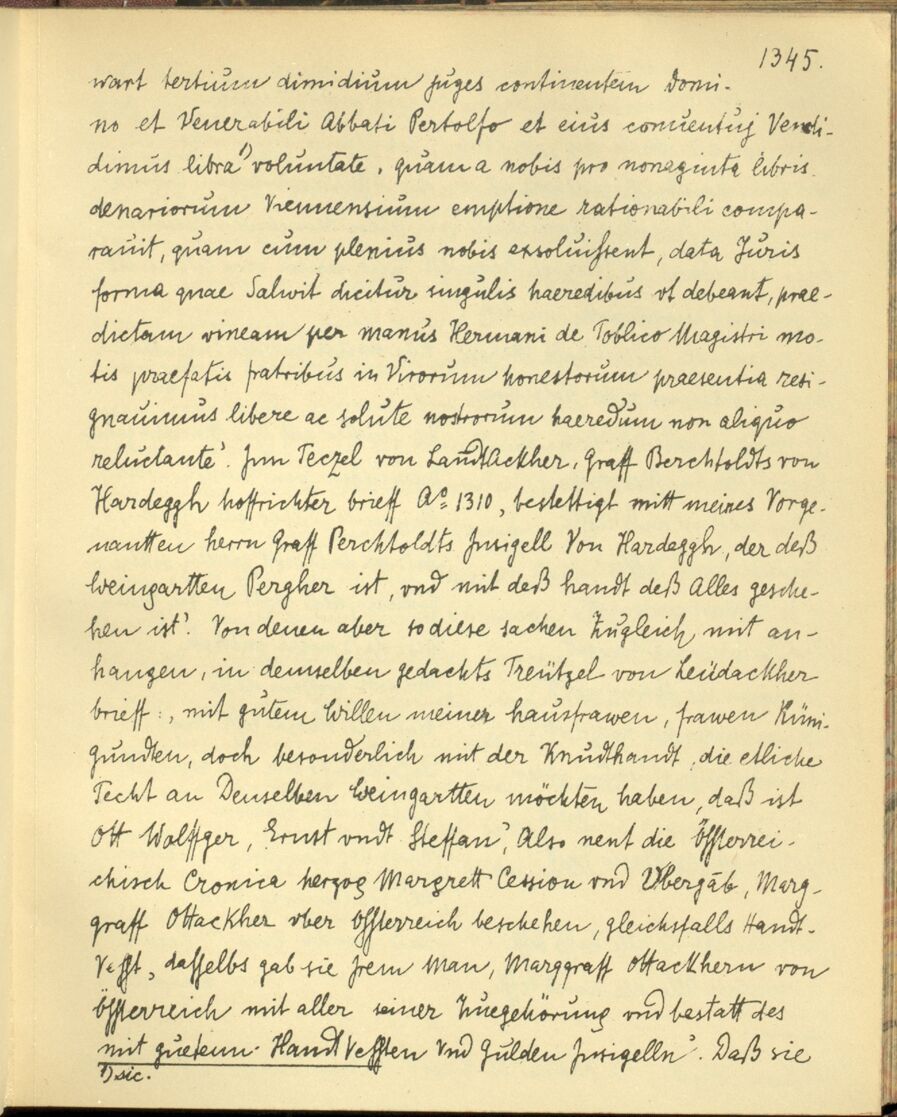 1345.
wart tertium dimidium juges continentem Domi-
no et Venerabili Abbati Pertolfo et eius conuentuj Vendi-
dimus libra¹⁾ voluntate, quam a nobis pro nonaginta libris
denariorum Viennensium emptione rationabili compa-
rauit, quam cum plenius nobis exsoluissent, data Juris
forma quae Salwit dicitur singulis haeredibus vt debeant, prae-
dictam vineam per manus Hermani de Toblico Magistri mo-
tis praefatis fratribus in Virorum honestorum praesentia resi-
gnauimus libere ac solute nostrorum haeredum non aliquo
reluctante'. Jnn Teczel von Landtackher, Graff Berchtoldts von
Hardeggh hoffrichter brieff Aº 1310, bestettigt mitt meines Vorge-
nantten herrn Graff Perchtoldts Jnsigell Von Hardeggh, der deß
Weingartten Pergher ist, vnd mit deß handt deß Alles gesche-
hen ist'. Von denen aber so diese sachen Zugleich mit an-
hangen, in demselben gedachts Treützel von Leüdackher
brieff:, mit gutem Willen meiner hausfrawen, frawen Küni-
gundten, doch besonderlich mit der Knudthandt, die etliche
Techt an Denselben Weingartten möchten haben, daß ist
Ott Wolffger, Ernst vndt Steffan', Also nent die Össterrei-
chisch Cronica herzog Margrett Cession vnd Vbergab, Marg-
graff Ottackher vber Össterreich beschehen, gleichsfalls Handt-
Vesst, dasselbs gab sie Jrem Man, Marggraff Ottackhern von
Össterreich mit aller seiner Zuegehörung vnd bestatt des
mit guetenn Handt Vessten Vnd Gulden Jnsigelln'. Daß sie
¹⁾ sic.